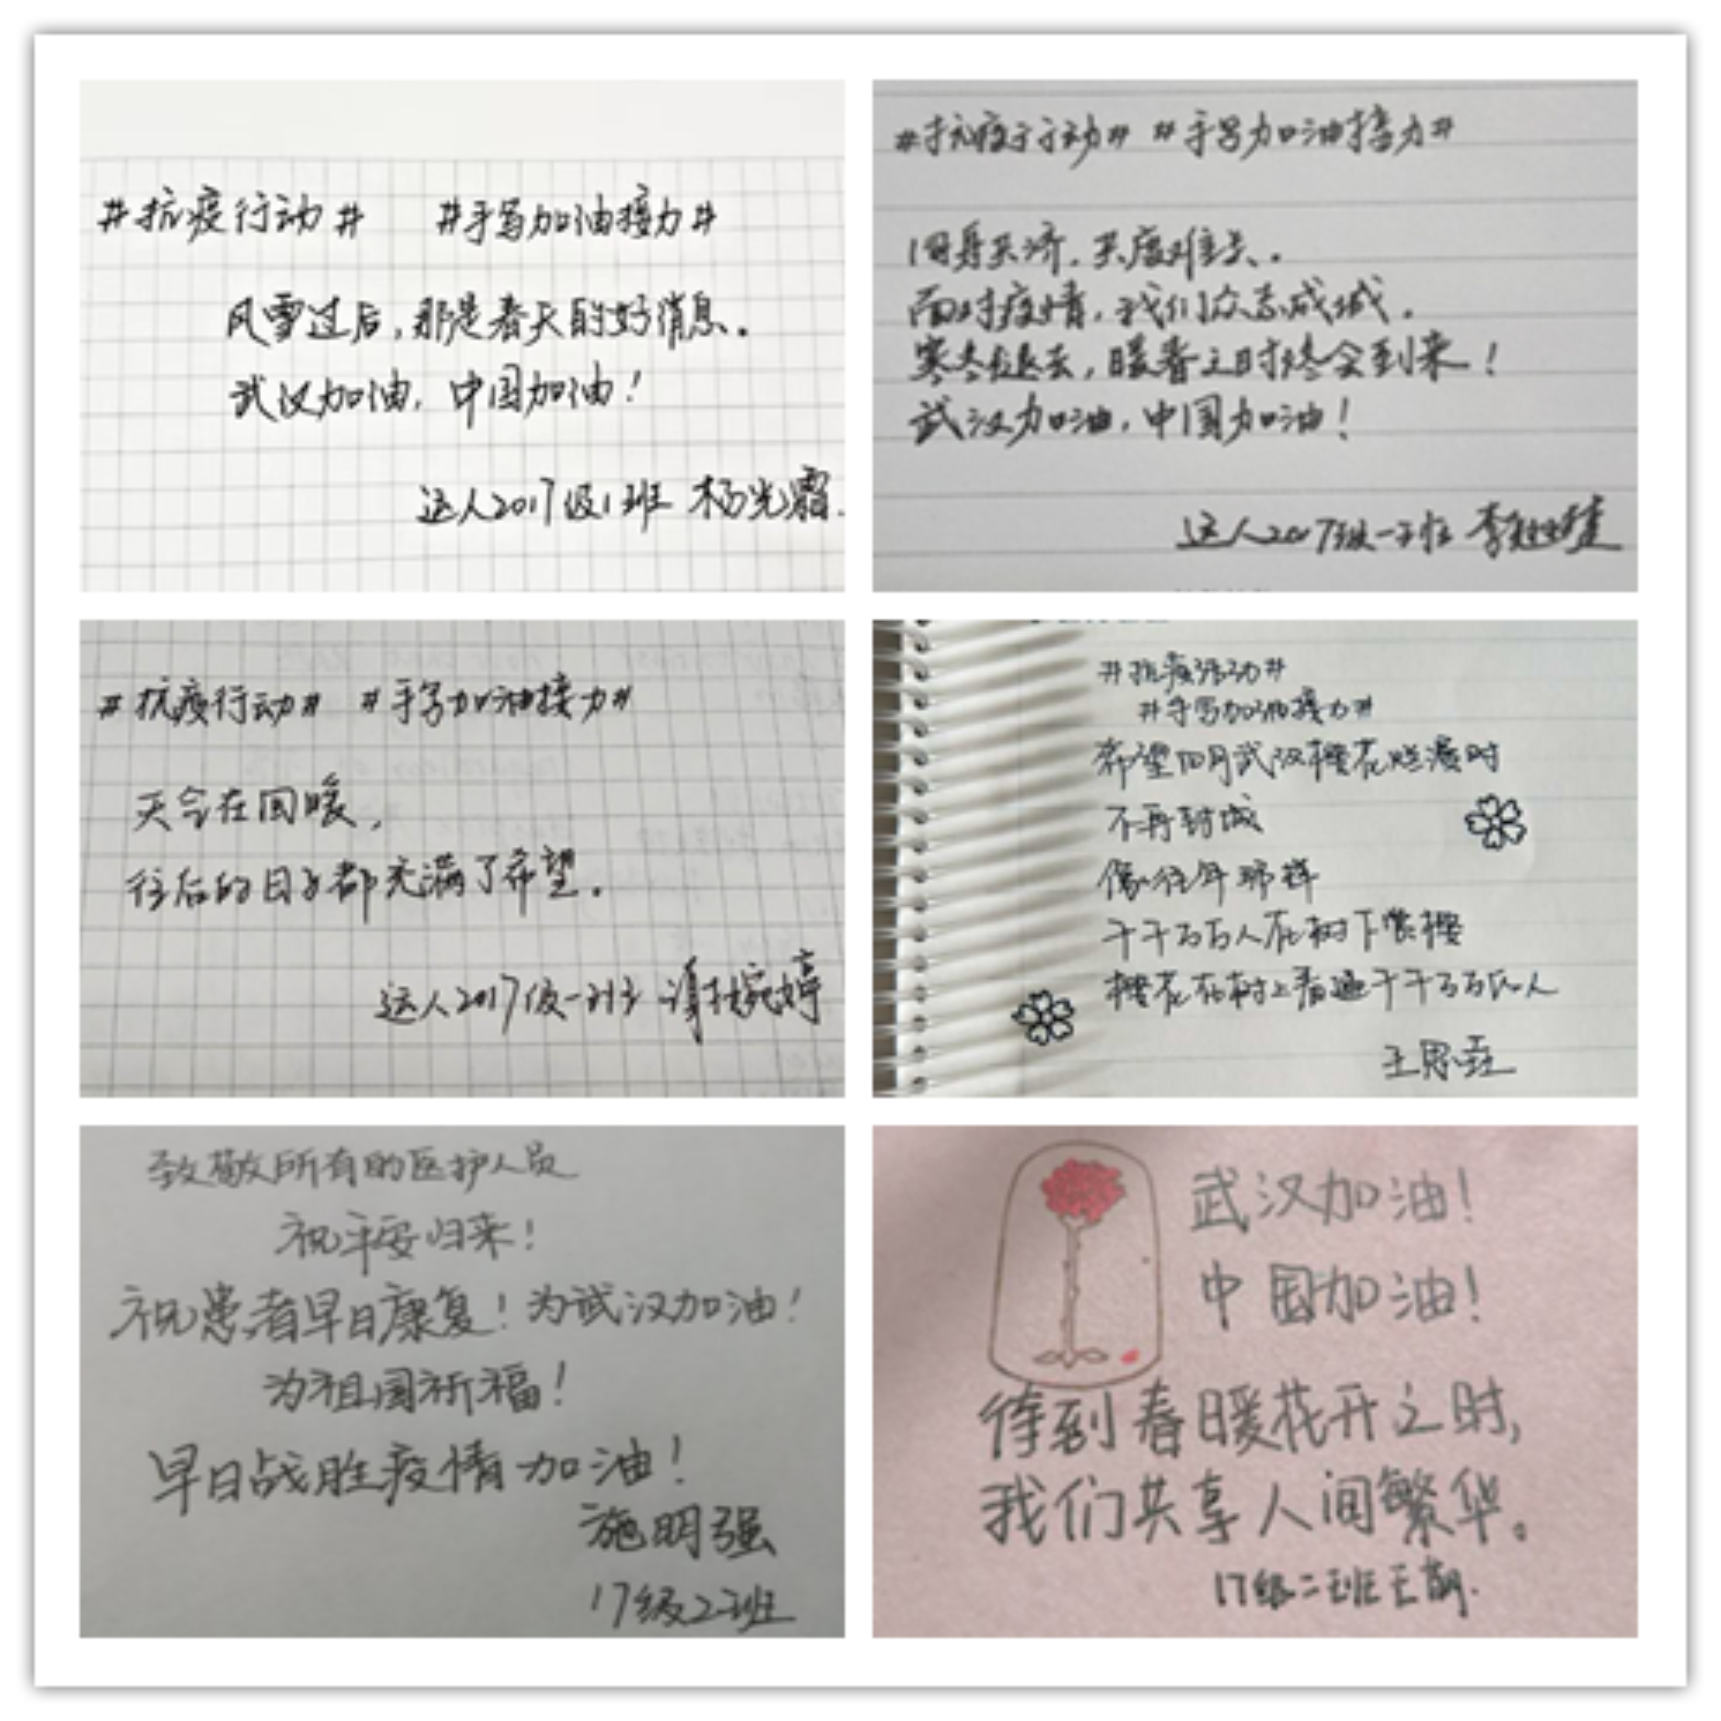 #抗疫行动# #手写加油接力#
风雪过后,那是春天的好消息。
武汉加油,中国加油!
达人2017级1班 杨光霜.
#抗疫行动# #手写加油接力#
同舟共济,共度难关。
面对疫情,我们众志成城。
寒冬退去,暖春之时终会到来!
武汉加油,中国加油!
达人2017级一班 李
#抗疫行动# #手写加油接力#
天会在回暖,
往后的日子都充满了希望。
达人2017级一班 谢婉婷
#抗疫活动#
#手写加油接力#
希望四月武汉樱花烂漫时
不再封城
像往年那样
千千万万人在树下赏樱
樱花在树上看遍千千万万的人
王思
致敬所有的医护人员
祝平安归来!
祝患者早日康复!为武汉加油!
为祖国祈福!
早日战胜疫情 加油!
施明强
17级2班
武汉加油!
中国加油!
待到春暖花开之时,
我们共享人间繁华。
17级二班王萌.